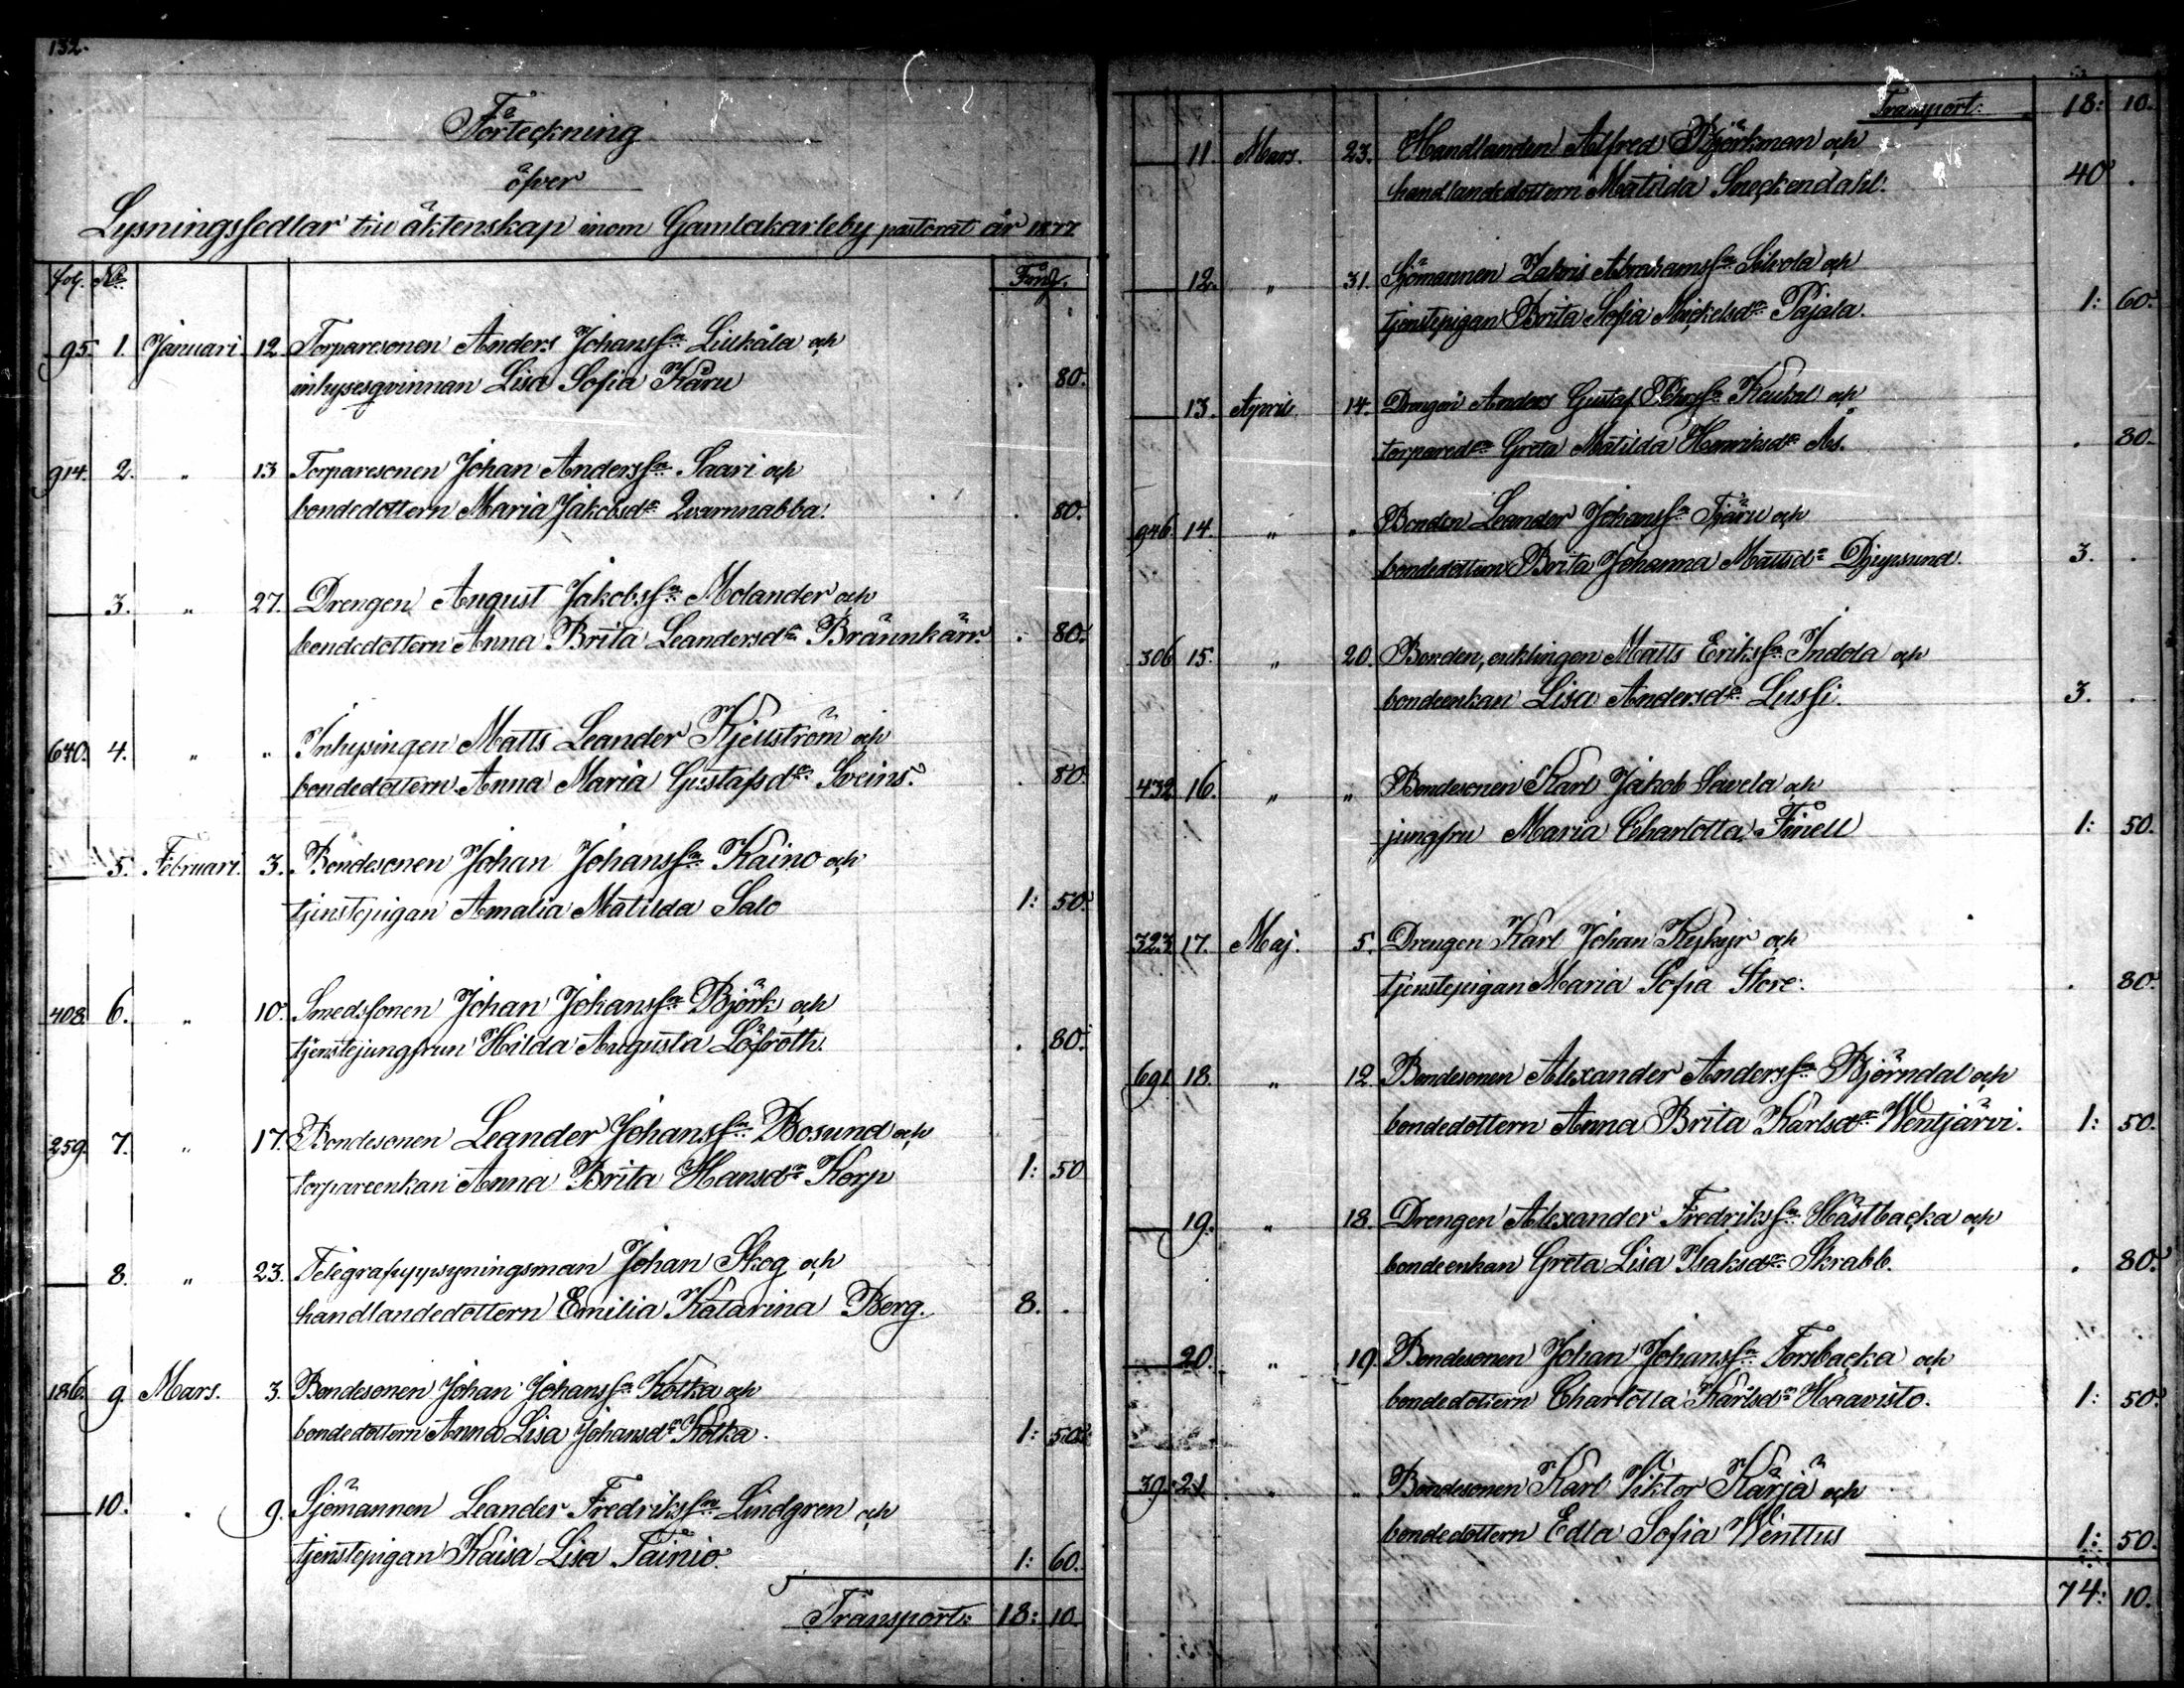 132.
Förteckning
öfver
Lysningssedlar till äktenskap inom Gamlakarleby pastorat år 1877
fol. No.
95. 1. Januari. 12. Torparesonen Anders Johansson Liiskala och
inhysesqvinnan Lisa Sofia Karu . 80.
914. 2. " 13 Torparesonen Johan Anderssn Saari och
bondedottern Maria Jakobsdr Qvarnnabba. . 80.
— 3. " 27. Drengen August Jakobssn Molander och
bondedottern Anna Brita Leandersdr Bräunkärr. . 80.
640. 4. " " Inhysingen Matts Leander Kjellström och
bondedottern Anna Maria Gustafsdr Sveins. . 80.
— 5. Februari. 3. Bondesonen Johan Johanssn Kaino och
tjenstepigan Amalia Matilda Salo 1: 50.
408. 6. " 10. Smedssonen Johan Johanssn Björk och
tjenstejungfrun Hilda Augusta Löfroth. . 80.
259. 7. " 17. Bondesonen Leander Johanssn Bosund och
torpareenkan Anna Brita Hansdr Korp 1: 50
— 8. " 23. Johan Skog och
handlandedottern Emilia Katarina Berg. 8. .
186. 9. Mars. 3. Bondesonen Johan Johanssn Kotka och
bondedottern Anna Lisa Johansdr Kotka. 1: 50.
— 10. " 9. Sjömannen Leander Fredrikssn Lindgren och
tjenstepigan Kaisa Lisa Tainio. 1: 60.
Transport: 18: 10.
Transport: 18: 10.
— 11. Mars. 23. Handlanden Alfred Björkman och
handlandedottern Matilda Sneckendahl. 40 .
— 12. " 31. Sjömannen Zakris Abrahamssn och
tjenstepigan Brita Sofia Mickelsdr Pajala. 1: 60.
— 13. April 14. Drengen Anders Gustaf och
torparedr Greta Matilda Henriksdr Ås. . 80.
946. 14. " " Bonden Leander Johanssn Tjäru och
bondedottern Brita Johanna Mattsdr Djupsund. 3. .
306 15. " 20. Bonden, enklingen Matts Erikssn Indola och
bondeenkan Lisa Andersdr Lussi. 3. .
432 16. " " Bondesonen Karl Jakob Savela och
jungfru Maria Charlotta Finell 1: 50.
323 17. Maj. 5. Drengen Karl Johan och
tjenstepigan Maria Sofia Store. . 80.
691 18. " 12. Bondesonen Alexander Anderssn Björndal och
bondedottern Anna Brita Karlsdr Wentjärvi. 1: 50.
— 19. " 18. Drengen Alexander Fredrikssn Hästbacka och
bondeenkan Greta Lisa Isaksdr Skrabb. . 80.
— 20. " 19. Bondesonen Johan Johanssn Forsbacka och
bondedottern Charlotta Karlsdr Haavisto. 1: 50.
39. 21. " " Bondesonen Karl Viktor Kärjä och
bondedottern Edla Sofia Wenttus 1: 50.
74: 10.